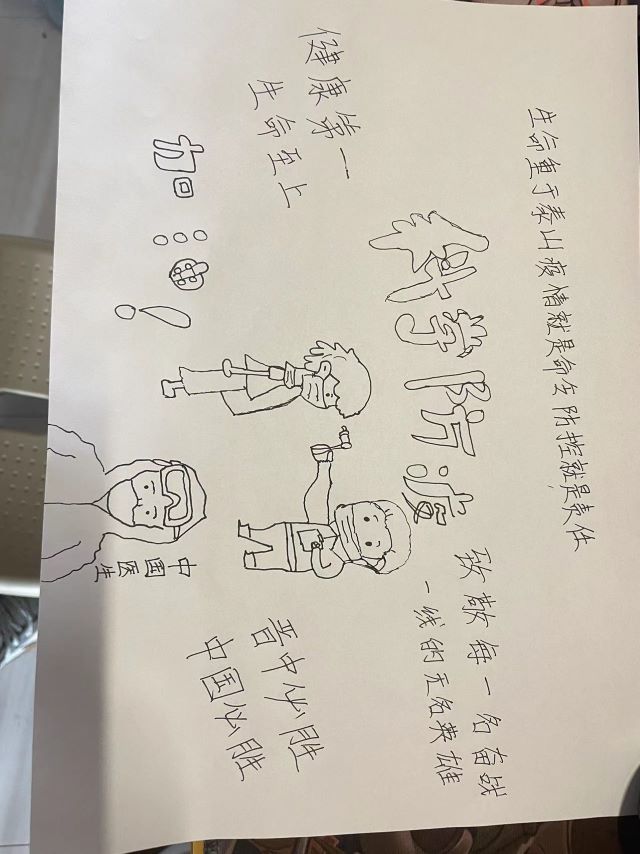 生命重于泰山疫情就是命令防控就是责任
科学防疫
健康第一
生命至上
致敬每一名奋战
一线的无名英雄
加油！
晋中必胜
中国必胜
中国
医生